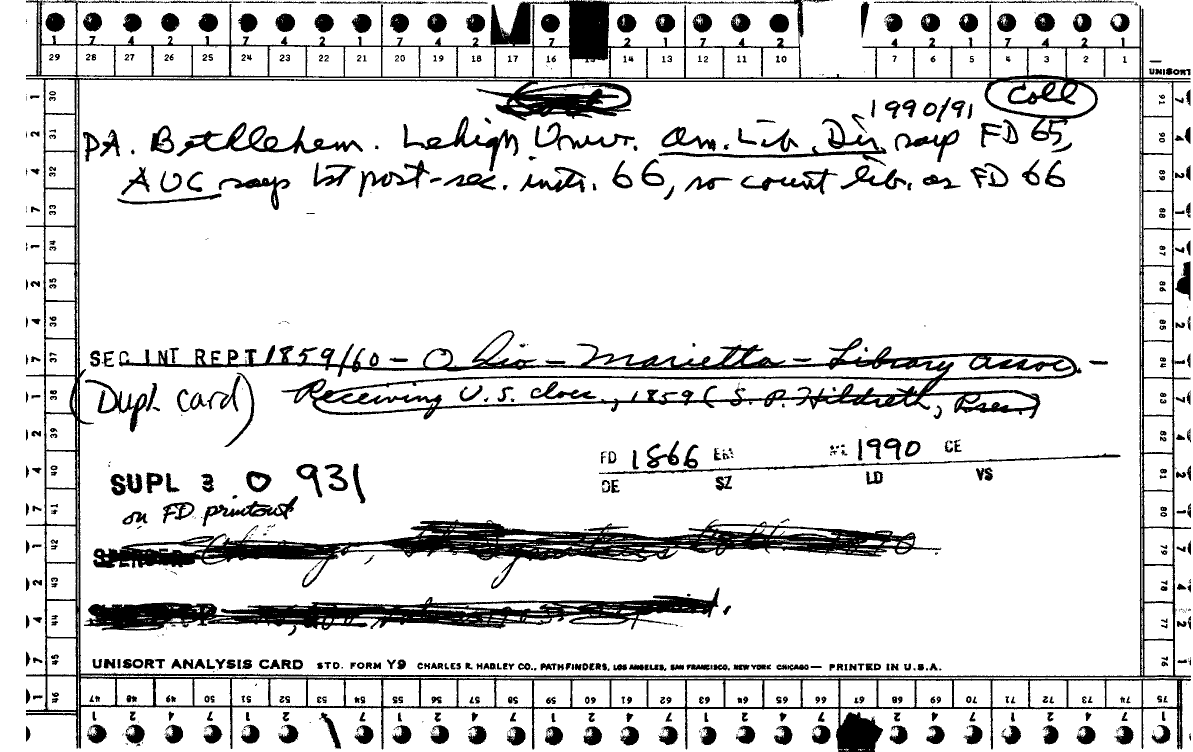 1 7 4 2 1 7 4 2 1 7 4 2 1 2 1 7 4 2 1 4 2 1 7 4 2 1
29 28 27 26 25 24 23 22 21 20 19 18 17 16 14 13 12 11 10 7 6 5 4 3 2 1
UNISORT
1990/91 Coll
PA. Bethlehem. Lehigh Univ. Am. Lib. Dir. says FD 65,
AUC says 1st post-sec. instr. 66, so count lib. as FD 66
SEC INT REPT 1859/60 - Ohio - Marietta - Library Assoc. -
(Dupl. card) Receiving U.S. docs., 1859 (S. P. Hildreth, Pres.)
FD 1866 EM VL 1990 CE
DE SZ LD VS
SUPL 3 0 931
on FD printout
SPENCER Chicago,
UNISORT ANALYSIS CARD STD. FORM Y9 CHARLES R. HADLEY CO., PATHFINDERS, LOS ANGELES, SAN FRANCISCO, NEW YORK CHICAGO — PRINTED IN U.S.A.
47 48 49 50 51 52 53 54 55 56 57 58 59 60 61 62 63 64 65 66 67 68 69 70 71 72 73 74 75